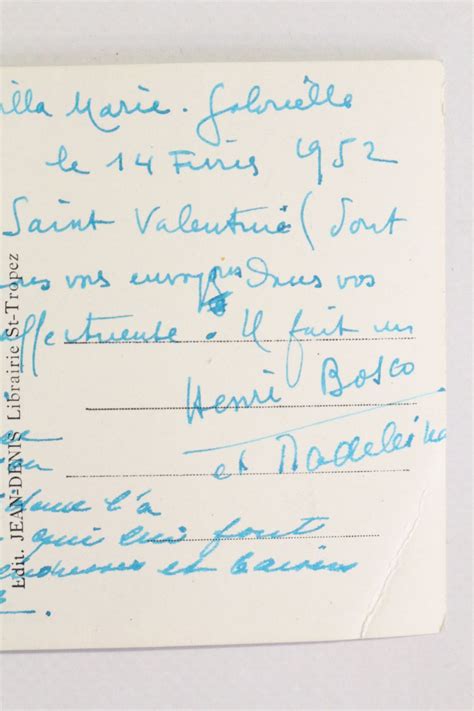 illa Marie. Gabrielle
le 14 Février 1952
Saint Valentin (dont
us vous envoyons dans vos
affectueuse. Il fait un
Henri Bosco
et Madeleine
l'a
qui lui font
tendresses et baisers
Edit. JEAN-DENIS Librairie St-Tropez